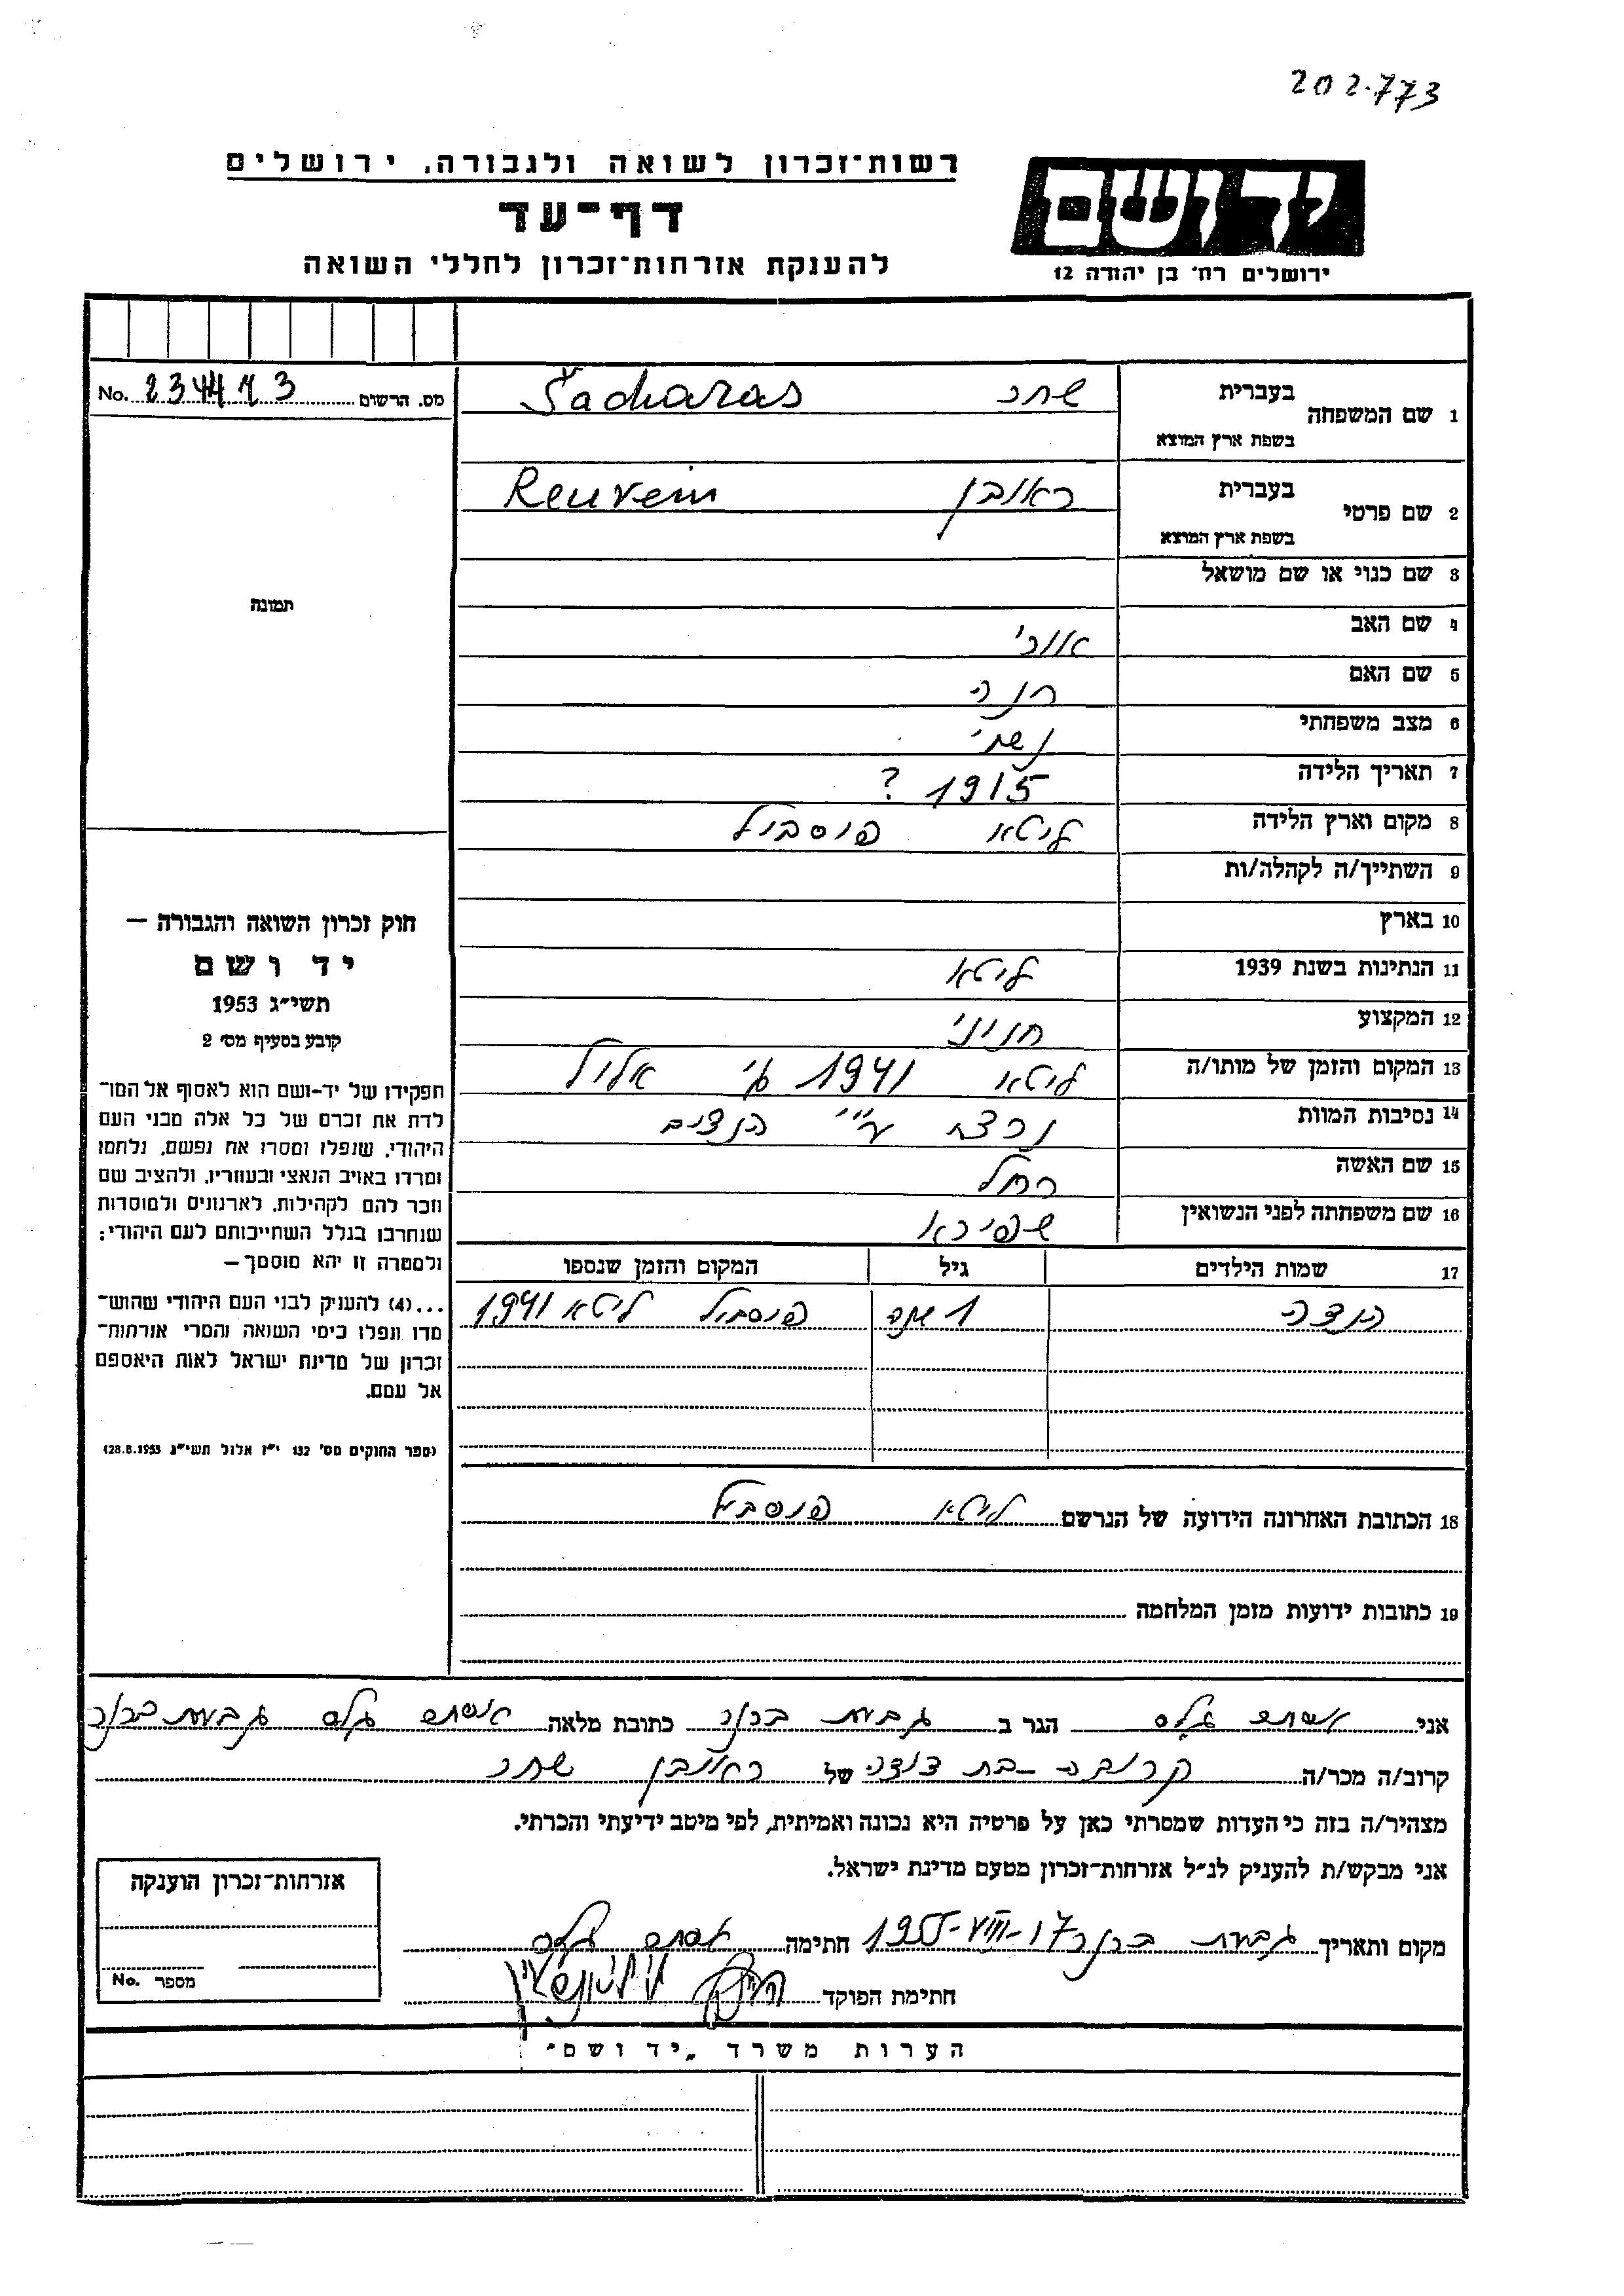 202.773
רשות־זכרון לשואה ולגבורה, ירושלים
יד ושם
דף־עד
להענקת אזרחות־זכרון לחללי השואה
ירושלים רח' בן יהודה 12
מס. הרשום No. 234473
1 שם המשפחה בעברית שחר Šacharas
בשפת ארץ המוצא
2 שם פרטי בעברית ראובן Reuvein
בשפת ארץ המוצא
תמונה
3 שם כנוי או שם מושאל
4 שם האב אורי
5 שם האם חנה
6 מצב משפחתי נשוי
7 תאריך הלידה 1915 ?
8 מקום וארץ הלידה ליטא פוסבול
9 השתייך/ה לקהלה/ות
10 בארץ
11 הנתינות בשנת 1939 ליטא
12 המקצוע חנוני
13 המקום והזמן של מותו/ה ליטא 1941 אלול
14 נסיבות המוות נרצח ע"י הנצים
15 שם האשה רחל
16 שם משפחתה לפני הנשואין שפירא
17 שמות הילדים גיל המקום והזמן שנספו
1 שנה פוסבול ליטא 1941
חוק זכרון השואה והגבורה –
יד ושם
תשי"ג 1953
קובע בסעיף מס' 2
תפקידו של יד-ושם הוא לאסוף אל המו־
לדת את זכרם של כל אלה מבני העם
היהודי, שנפלו ומסרו את נפשם, נלחמו
ומרדו באויב הנאצי ובעוזריו, ולהציב שם
וזכר להם לקהילות, לארגונים ולמוסדות
שנחרבו בגלל השתייכותם לעם היהודי;
ולמטרה זו יהא מוסמך –
...(4) להעניק לבני העם היהודי שהוש־
מדו ונפלו בימי השואה והמרי אזרחות־
זכרון של מדינת ישראל לאות היאספם
אל עמם.
(ספר החוקים מס' 132 י"ז אלול תשי"ג 28.8.1953)
18 הכתובת האחרונה הידועה של הנרשם ליטא פוסבול
19 כתובות ידועות מזמן המלחמה
אני הגר ב גבעת ברנר כתובת מלאה גבעת ברנר
קרוב/ה מכר/ה קרובה - בת דודה של ראובן שחר
מצהיר/ה בזה כי העדות שמסרתי כאן על פרטיה היא נכונה ואמיתית, לפי מיטב ידיעתי והכרתי.
אני מבקש/ת להעניק לנ"ל אזרחות־זכרון מטעם מדינת ישראל.
מקום ותאריך גבעת ברנר 17-VIII-1955 חתימה
חתימת הפוקד
אזרחות־זכרון הוענקה
מספר No.
הערות משרד „יד ושם"